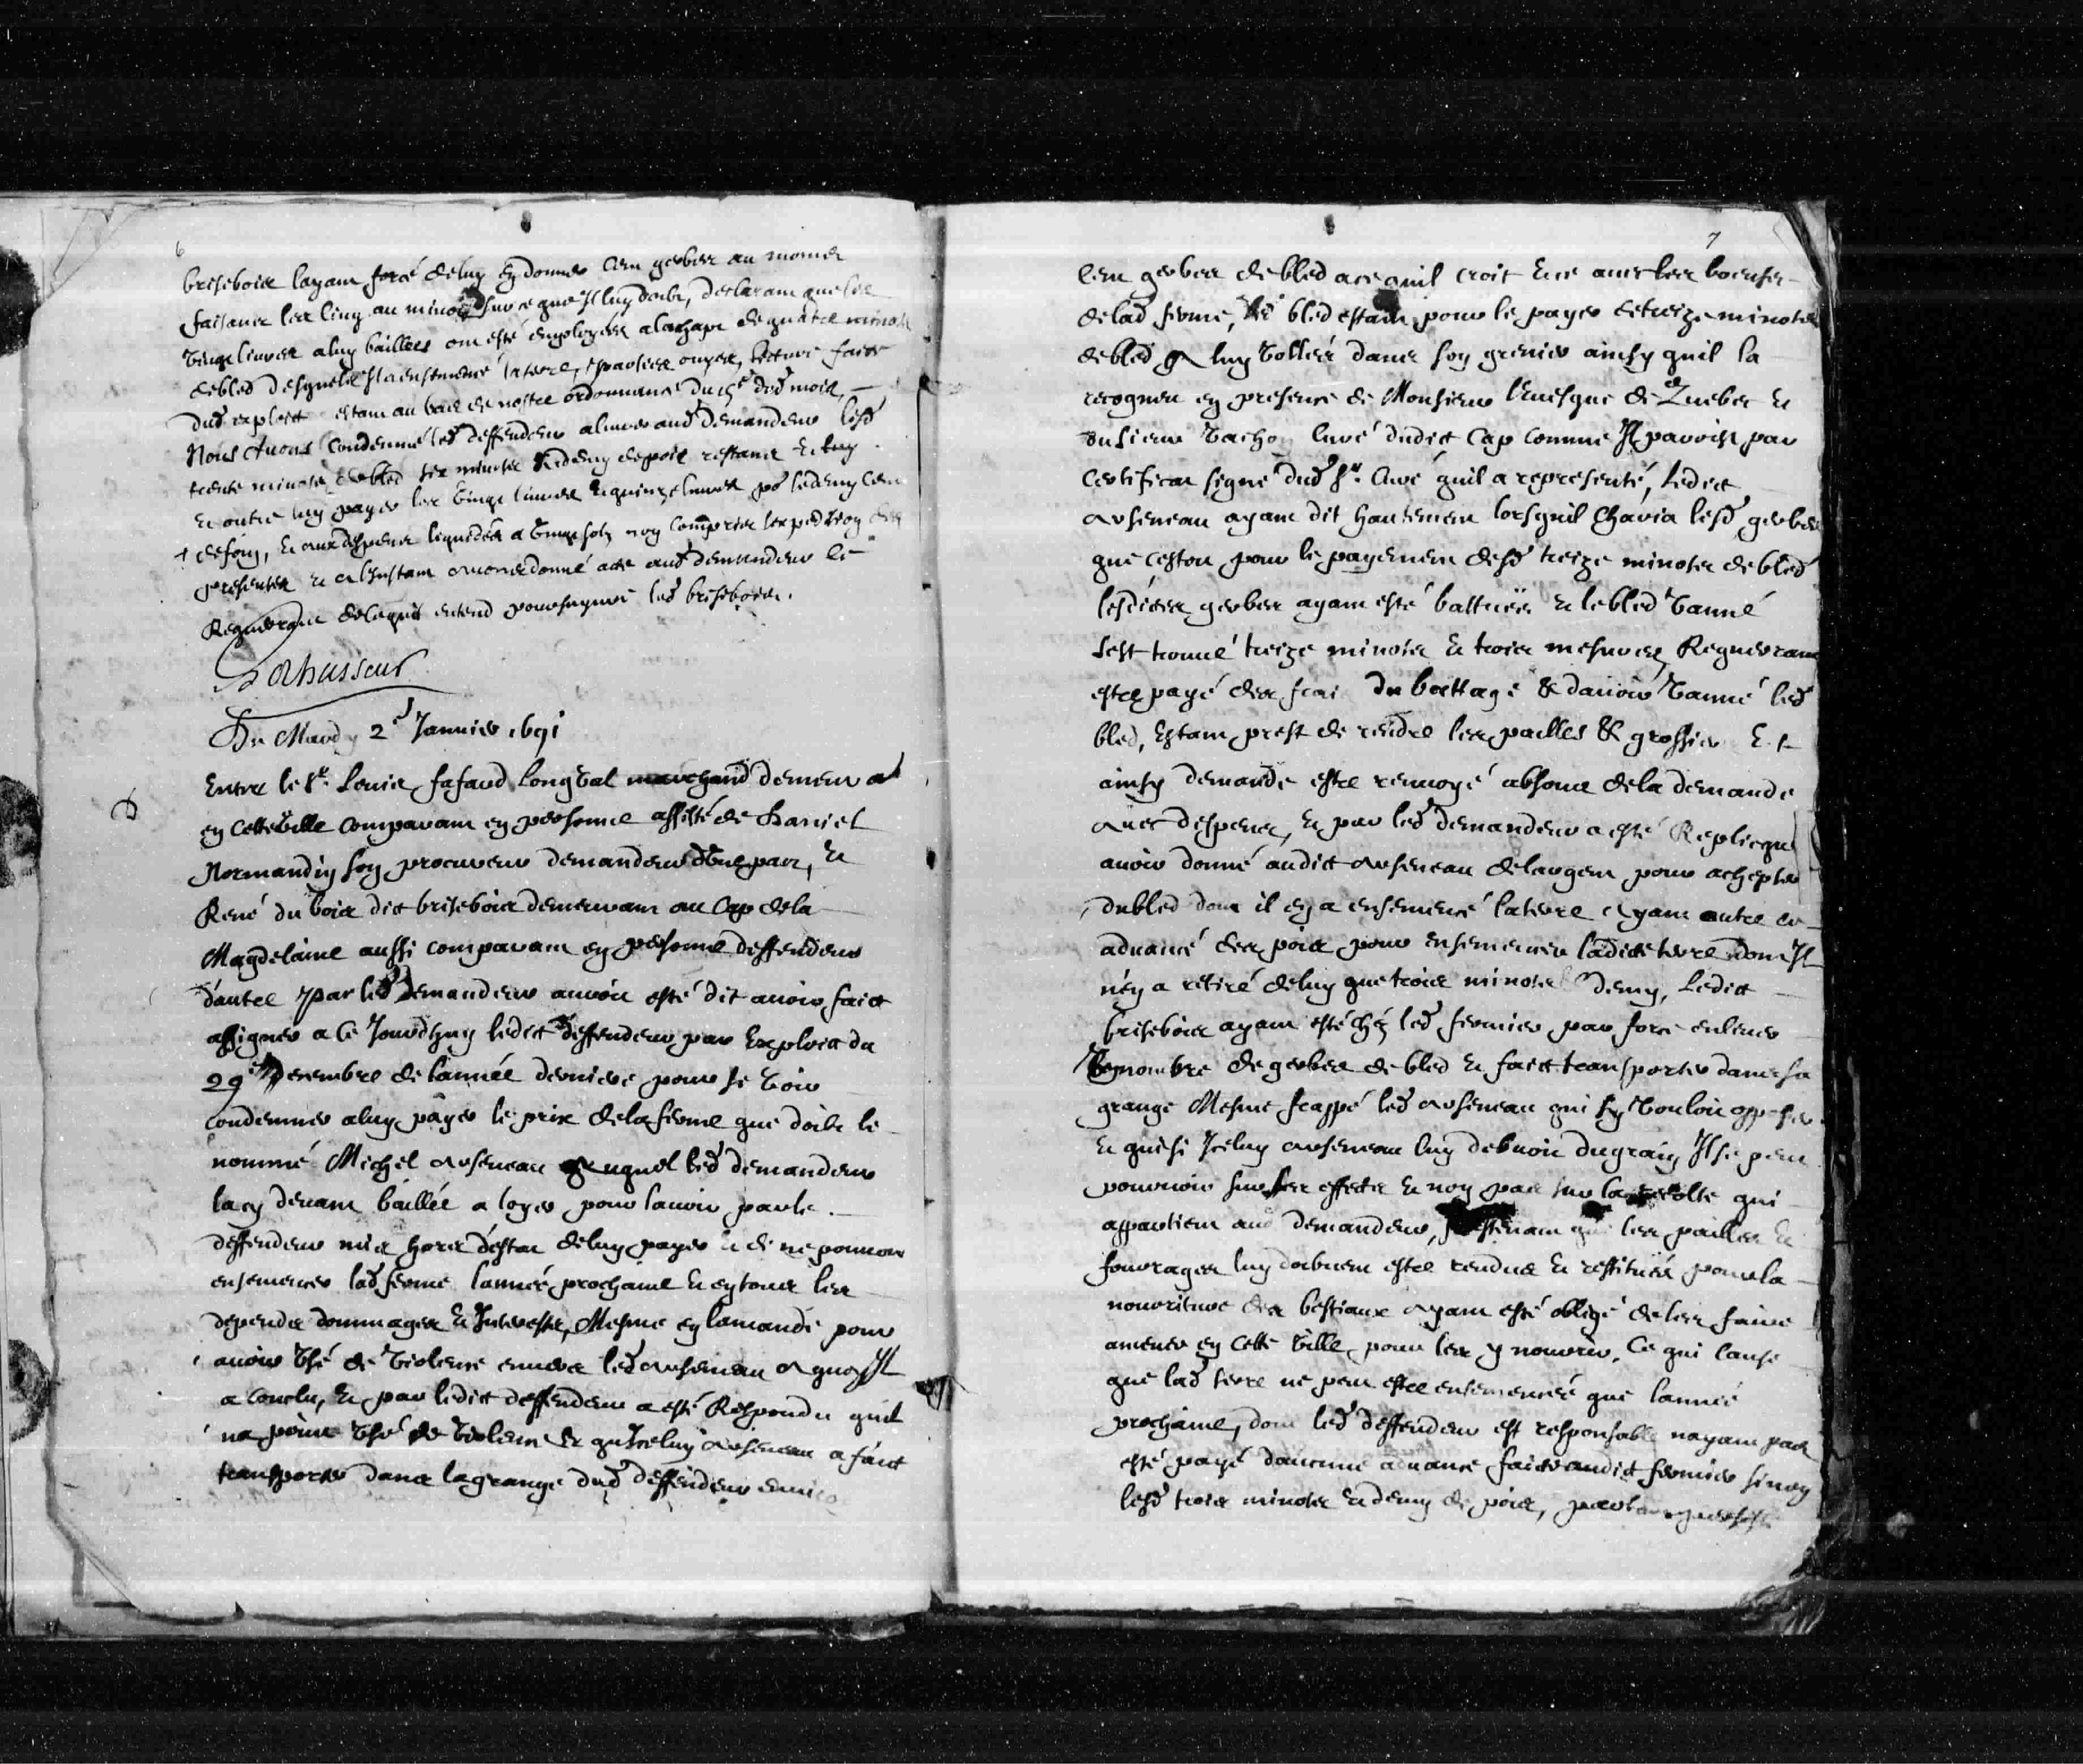 6
briseboia layant forcé deluy en donner cent gerbes au moins
faisant les cinq au minot sur ce que Il luy doibt, declarant que les
vingt livres a luy baillees ont esté employées a lachapt de quatre minots
debled desquels Il a ensemencé la terre, & parties ouyes, lecture faict
dud exploict estant au bas de nostre ordonnance du dud mois
Nous Avons Condemné led deffendeur a livrer aud demandeur lesd
trente minots de bled six minots & demy de pois restans & luy
& outre luy payer les vingt livres & quinze livres po le demy cent
+ de foin, & aux despens liquidés a vingt solz non compris lexpedition des
presentes & a Linstant avons donné acte aud demandeur de
Requerant delaquis entend poursuyvre led briseboia.
Lechasseur
Du Mardy 2e Janvier 1691
Entre le Sr. Louis fafard Longval marchand demeurat
en cette ville comparant en personne assisté de Daniel
Normandin son procureur demandeur d'une part, &
René du bois dit brisebois demeurant au Cap dela
Magdelaine aussi comparant en personne deffendeur
dautre par led Demandeur auroit esté dit avoir faict
assigner a Ce Jourdhuy ledict deffendeur par Exploict du
29e Decembre de lannée derniere pour se voir
condemner a luy payer le prix dela ferme que doibt le
nommé Michel arseneau auquel led demandeur
la cy devant baillée a loyer pour lavoir par le
deffendeur mis hors d'estat deluy payer & de ne pouvoir
ensemencer lad ferme lannée prochaine & en tous les
depends dommages & Interests, Mesme en lamande pour
avoir usé de violence envers led arseneau a quoy Il
a Conclu, & par ledict deffendeur a esté Respondu quil
na point usé de violence & qu'Iceluy arseneau a faict
transporter dans la grange dud deffendeur
7
Cent gerbes de bled a ce quil croit & ce avec les boeufs
delad ferme, led bled estant pour le payer de treize minots
debled a luy volléé dans son grenier ainsy quil la
recognu en presence de Monsieur Levesque de Quebec &
du sieur Vachon Curé dudict Cap comme Il paroist par
Certificat signé dud Sr. Curé quil a representé, Ledict
arseneau ayant dit hautement lorsquil charia lesd gerbes
que cestoit pour le payement desd treize minots de bled
lesdictes gerbes ayant esté battuës & le bled vanné
sest trouvé treize minots & trois mesures Requerant
estre payé des frais du battage & davoir vanné led
bled, Estant prest de rendre les pailles & grossier Et
ainsy demande estre renvoyé absous dela demande
avec despens, & par led demandeur a esté Repliqué
avoir donné audict arseneau delargent pour achepter
du bled dont il en a ensemencé la terre ayant outre ce
advancé des pois pour ensemencer ladicte terre dont Il
n'en a retiré deluy que trois minots & Demy, Ledict
briseboia ayant esté chez led fermier par force enlever
Un nombre de gerbes de bled & faict transporter dans sa
grange Mesme frappé led arseneau qui sy vouloit opposer.
& que si Iceluy arseneau luy debvoit du grain Il se peut
pourvoir sur ses effects & non pas sur la recolte qui
appartient aud demandeur, que les pailles &
fourrages luy doibvent estre rendus & restitués pour la
nourriture des bestiaux ayant esté obligé de les faire
amener en cette ville pour les y nourrir, Ce qui cause
que lad terre ne peut estre ensemencée que lannée
prochaine, dont led deffendeur est responsable nayant pas
esté payé daucune advance faicte audict fermier sinon
lesd trois minots & demy de pois,